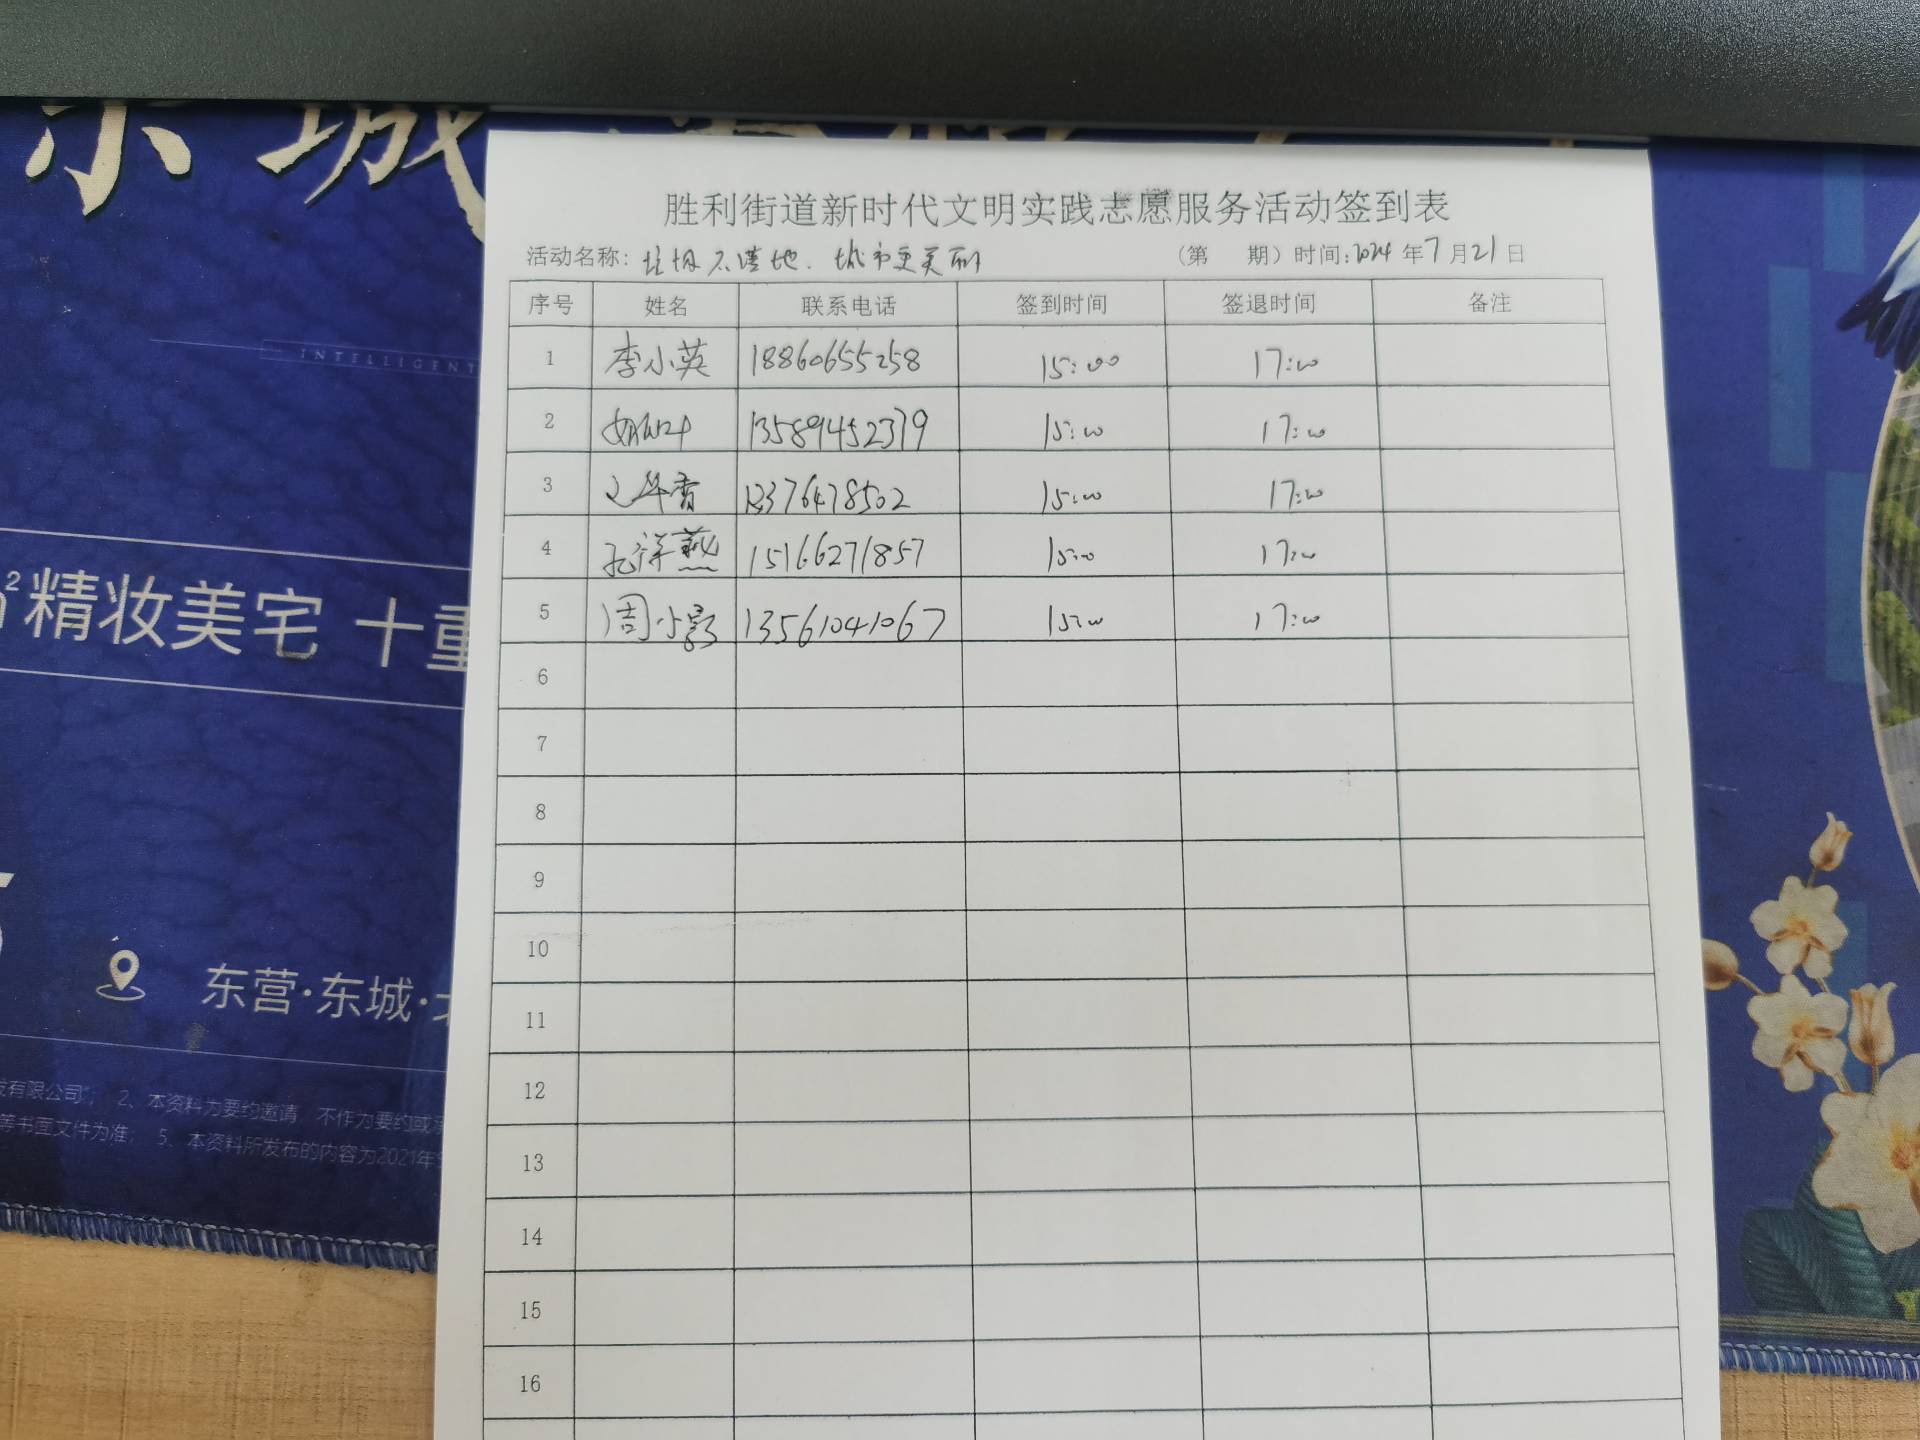 东城
INTELLIGENT
㎡精妆美宅 十重
东营·东城·
发有限公司”； 2、本资料为要约邀请，不作为要约或
等书面文件为准； 5、本资料所发布的内容为2021年
胜利街道新时代文明实践志愿服务活动签到表
活动名称：垃圾不落地．城市更美丽 （第 期）时间：2024年7月21日
序号 姓名 联系电话 签到时间 签退时间 备注
1 李小英 18860655258 15:00 17:00
2 13589452379 15:00 17:00
3 13376478502 15:00 17:00
4 孔祥燕 15166271857 15:00 17:00
5 周小影 13561041067 15:00 17:00
6
7
8
9
10
11
12
13
14
15
16